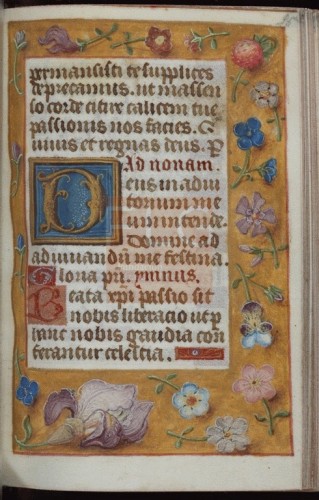 permansisti te supplices
deprecamur. ut massen
so corde citire calicem tue
passionis nos facies. Q
uiuis et regnas deus. P
Ad nonam.
Deus in adiu
torium me
um intende.
Domine ad
adiuuandū me festina.
Gloria pr̄i. ymnus.
Beata xpi passio sit
nobis liberacio ut p
hanc nobis gaudia con
terantur celestia.